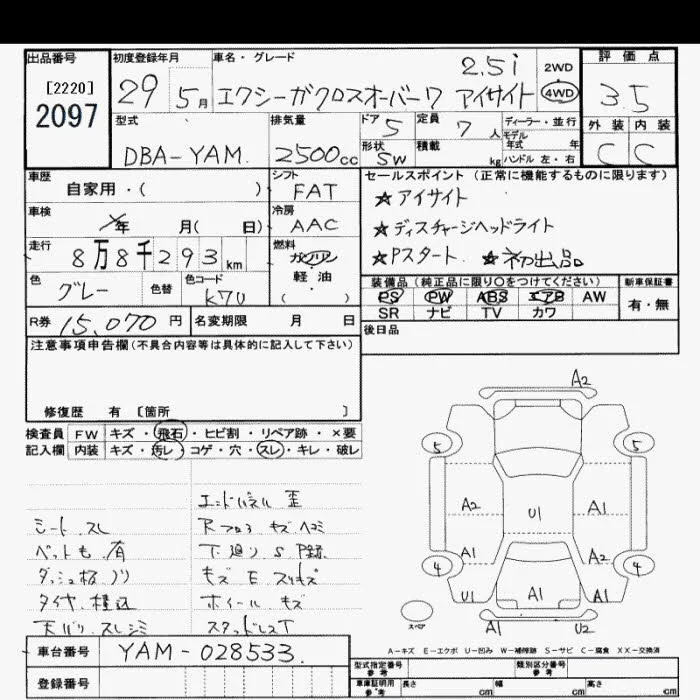 出品番号 初度登録年月 車名・グレード 評価点
[2220]
2097
29 5月 エクシーガクロスオーバー7 2.5i アイサイト 2WD 4WD
3.5
外装 内装
C C
型式 排気量 ドア 定員 ディーラー・並行
DBA-YAM 2500cc 5 7人 モデル年式 年
形状 積載 ハンドル 左・右
SW kg
車歴 シフト セールスポイント(正常に機能するものに限ります)
自家用・( ) FAT ☆アイサイト
車検 冷房 ☆ディスチャージヘッドライト
年 月( 日) AAC ☆Pスタート ☆初出品
走行 燃料
8万8千293km ガソリン
軽・油
( )
色 色替 色コード
グレー K7U
装備品(純正品に限り○をつけてください) 新車保証書
PS PW ABS エアB AW 有・無
SR ナビ TV カワ
R券 15,070円 名変期限 月 日 後日品
注意事項申告欄(不具合内容等は具体的に記入して下さい)
修復歴 有 [箇所 ]
検査員 FW キズ・飛石・ヒビ割・リペア跡・×要
記入欄 内装 キズ・汚レ・コゲ・穴・スレ・キレ・破レ
エンドパネル 歪
シート スレ Rフロア キズ ヘコミ
ペットも 有 下廻り S P録
ダッシュ板 ノリ キズ E スリキズ
タイヤ 積込 ホイール キズ
天バリ スレ シミ スタッドレスT
A2
5 5
A2 U1 A1
A1 A2
4 4
U1 A1 A1
スペア A1 U2
A-キズ E-エクボ U-凹み W-補修跡 S-サビ C-腐食 XX-交換済
車台番号 YAM-028533
登録番号
型式指定番号 参考 類別区分番号 参考
車庫証明用 参考 長さ cm 幅 cm 高さ cm